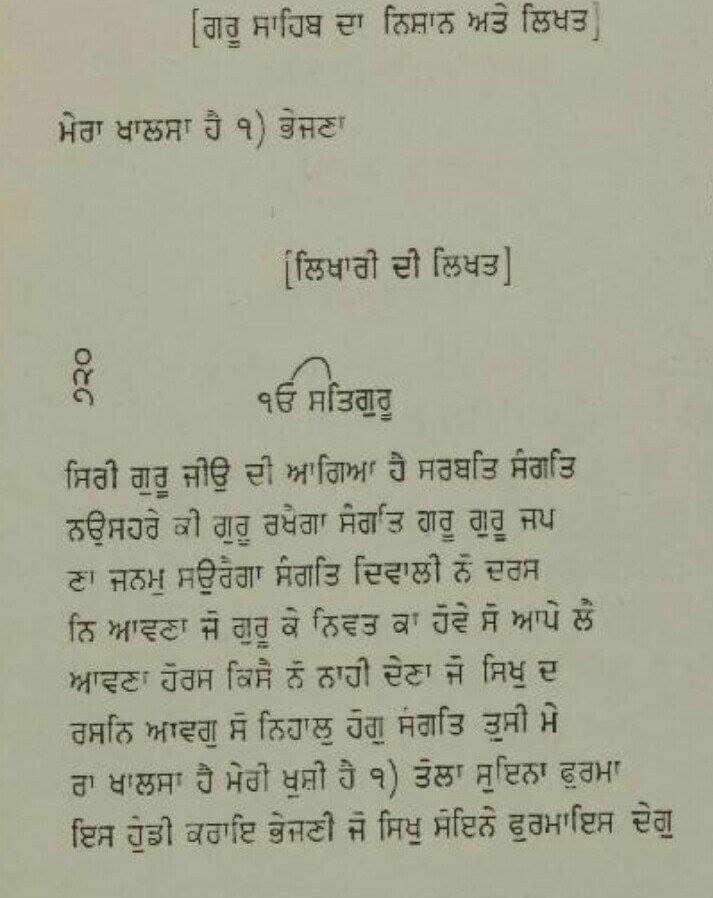 [ਗਰੂ ਸਾਹਿਬ ਦਾ ਨਿਸ਼ਾਨ ਅਤੇ ਲਿਖਤ]
ਮੇਰਾ ਖਾਲਸਾ ਹੈ ੧) ਭੇਜਣਾ
[ਲਿਖਾਰੀ ਦੀ ਲਿਖਤ]
੧ਓ ਸਤਿਗੁਰੂ
ਸਿਰੀ ਗੁਰੂ ਜੀਉ ਦੀ ਆਗਿਆ ਹੈ ਸਰਬਤਿ ਸੰਗਤਿ
ਨਉਸਹਰੇ ਕੀ ਗੁਰੂ ਰਖੈਗਾ ਸੰਗਤਿ ਗਰੂ ਗੁਰੂ ਜਪ
ਣਾ ਜਨਮੁ ਸਉਰੈਗਾ ਸੰਗਤਿ ਦਿਵਾਲੀ ਨੋ ਦਰਸ
ਨਿ ਆਵਣਾ ਜੋ ਗੁਰੂ ਕੇ ਨਿਵਤ ਕਾ ਹੋਵੇ ਸੋ ਆਪੇ ਲੈ
ਆਵਣਾ ਹੋਰਸ ਕਿਸੈ ਨੋ ਨਾਹੀ ਦੇਣਾ ਜੋ ਸਿਖੁ ਦ
ਰਸਨਿ ਆਵਗੁ ਸੋ ਨਿਹਾਲੁ ਹੋਗੁ ਸੰਗਤਿ ਤੁਸੀ ਮੇ
ਰਾ ਖਾਲਸਾ ਹੈ ਮੇਰੀ ਖੁਸ਼ੀ ਹੈ ੧) ਤੋਲਾ ਸੁਇਨਾ ਫੁਰਮਾ
ਇਸ ਹੁੰਡੀ ਕਰਾਇ ਭੇਜਣੀ ਜੋ ਸਿਖੁ ਸੋਇਨੇ ਫੁਰਮਾਇਸ ਦੇਗੁ